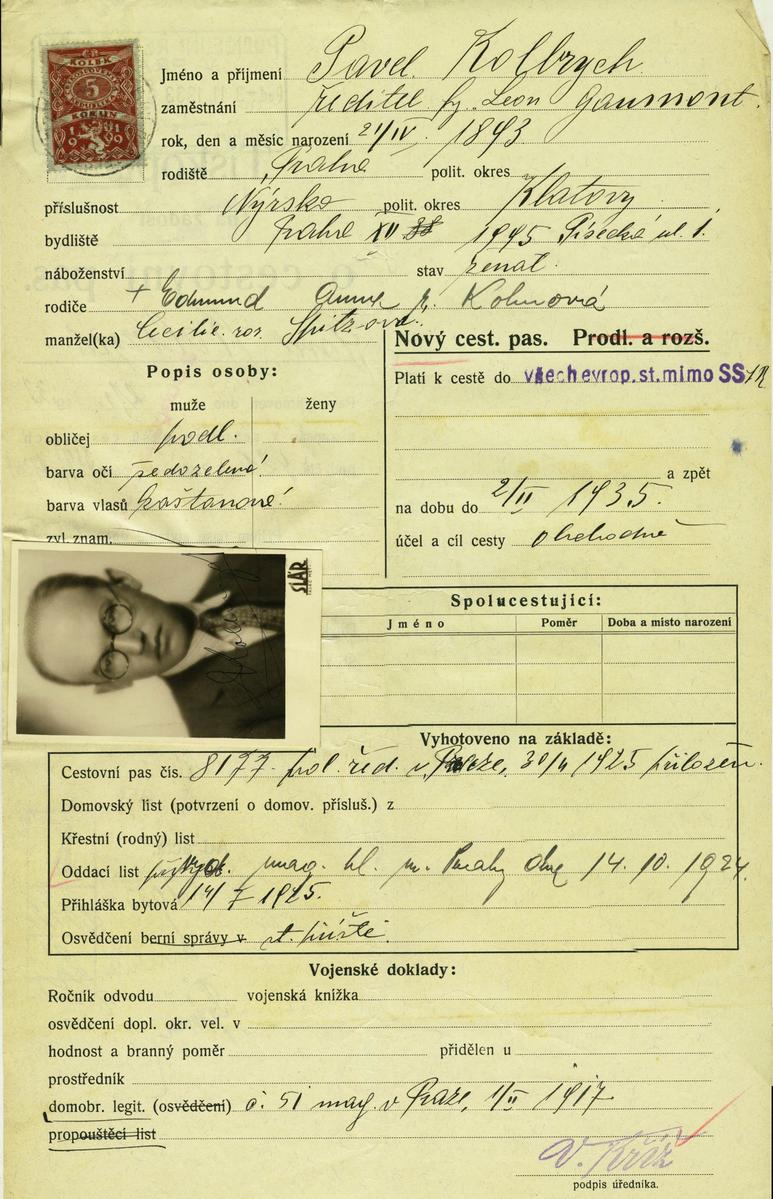 KOLEK
5
KORUN
1919
Jméno a příjmení Pavel Kolbrych
zaměstnání ředitel fy. Leon Gaumont.
rok, den a měsíc narození 21/IV. 1893
rodiště Praha polit. okres
příslušnost Nýrsko polit. okres Klatovy
bydliště Praha XII 1945 Písecká ul. 1.
náboženství stav ženat.
rodiče + Edmund Anna r. Kohnová
manžel(ka) Cecilie roz. Spitzová.
Nový cest. pas. Prodl. a rozš.
Platí k cestě do všech evrop. st. mimo SSR
a zpět
na dobu do 2/II 1935.
účel a cíl cesty obchodně
Popis osoby:
muže ženy
obličej podl.
barva očí šedozelené
barva vlasů kaštanové
zvl. znam.
SLÁR
Spolucestující:
Jméno Poměr Doba a místo narození
Vyhotoveno na základě:
Cestovní pas čís. 8177 pol. řed. v Praze, 30/ 1925 přiložen.
Domovský list (potvrzení o domov. přísluš.) z
Křestní (rodný) list
Oddací list mag. hl. m. Prahy dne 14. 10. 1924.
Přihláška bytová 14/ 1925.
Osvědčení berní správy v
Vojenské doklady:
Ročník odvodu vojenská knížka
osvědčení dopl. okr. vel. v
hodnost a branný poměr přidělen u
prostředník
domobr. legit. (osvědčení) č. 51 mag. v Praze, 1/II 1917.
propouštěcí list
V. Kříž
podpis úředníka.